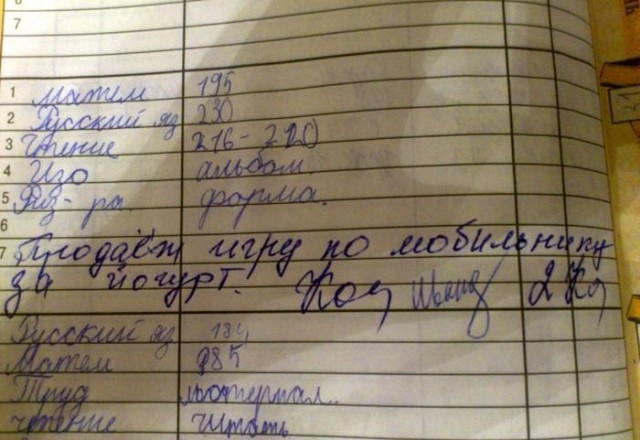 7
1 матем 195
2 Русский яз 230
3 Чтение 216-220
4 Изо альбом.
5 Физ-ра. форма.
6
7 Продаёт игру по мобильнику
за йогурт. 2
Русский яз 184
Матем 985
Труд материал.
чтение Читать